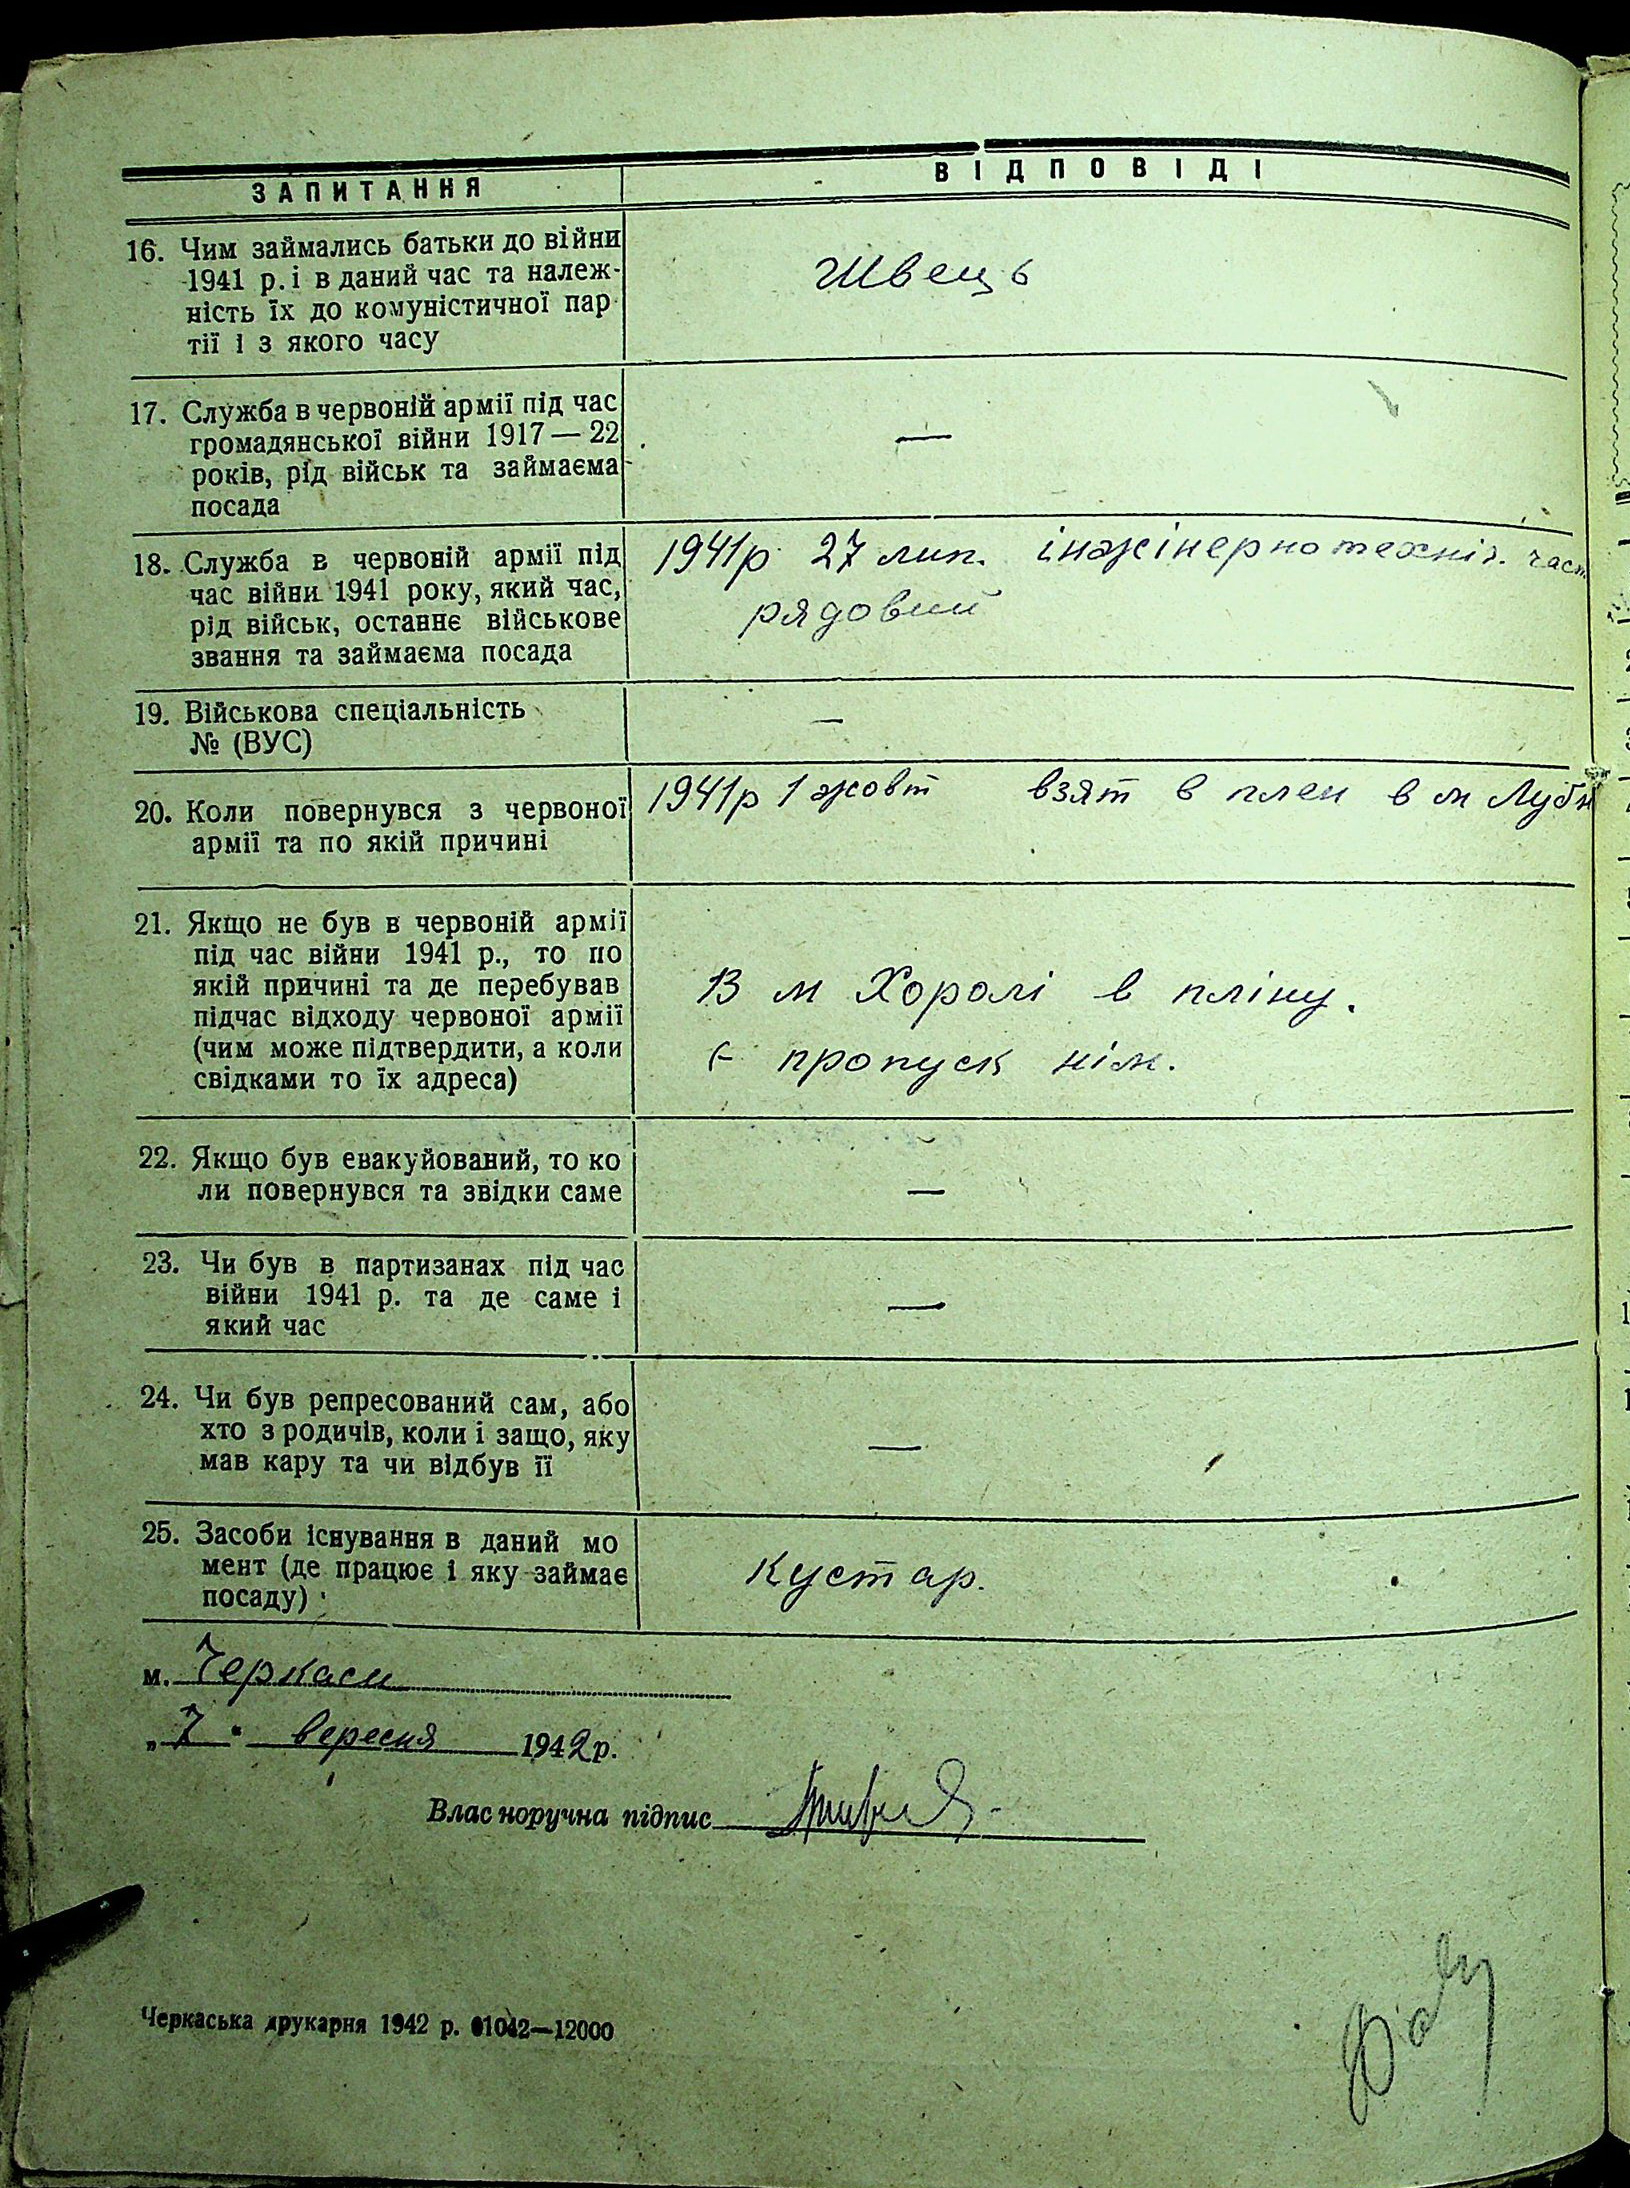 ЗАПИТАННЯ
ВІДПОВІДІ
16. Чим займались батьки до війни
1941 р. і в даний час та належ-
ність їх до комуністичної пар
тії і з якого часу
Швець
17. Служба в червоній армії під час
громадянської війни 1917 — 22
років, рід військ та займаєма
посада
—
18. Служба в червоній армії під
час війни 1941 року, який час,
рід військ, останнє військове
звання та займаєма посада
1941р 27 лип. інжінерно техніч. част
рядовий
19. Військова спеціальність
№ (ВУС)
—
20. Коли повернувся з червоної
армії та по якій причині
1941р 1 жовт взят в плен в м Лубн
21. Якщо не був в червоній армії
під час війни 1941 р., то по
якій причині та де перебував
підчас відходу червоної армії
(чим може підтвердити, а коли
свідками то їх адреса)
В м Хоролі в пліну.
є пропуск нім.
22. Якщо був евакуйований, то ко
ли повернувся та звідки саме
—
23. Чи був в партизанах під час
війни 1941 р. та де саме і
який час
—
24. Чи був репресований сам, або
хто з родичів, коли і защо, яку
мав кару та чи відбув її
—
25. Засоби існування в даний мо
мент (де працює і яку займає
посаду)
Кустар.
м. Черкаси
„7" вересня 1942 р.
Власноручна підпис
Черкаська друкарня 1942 р. 01042—12000